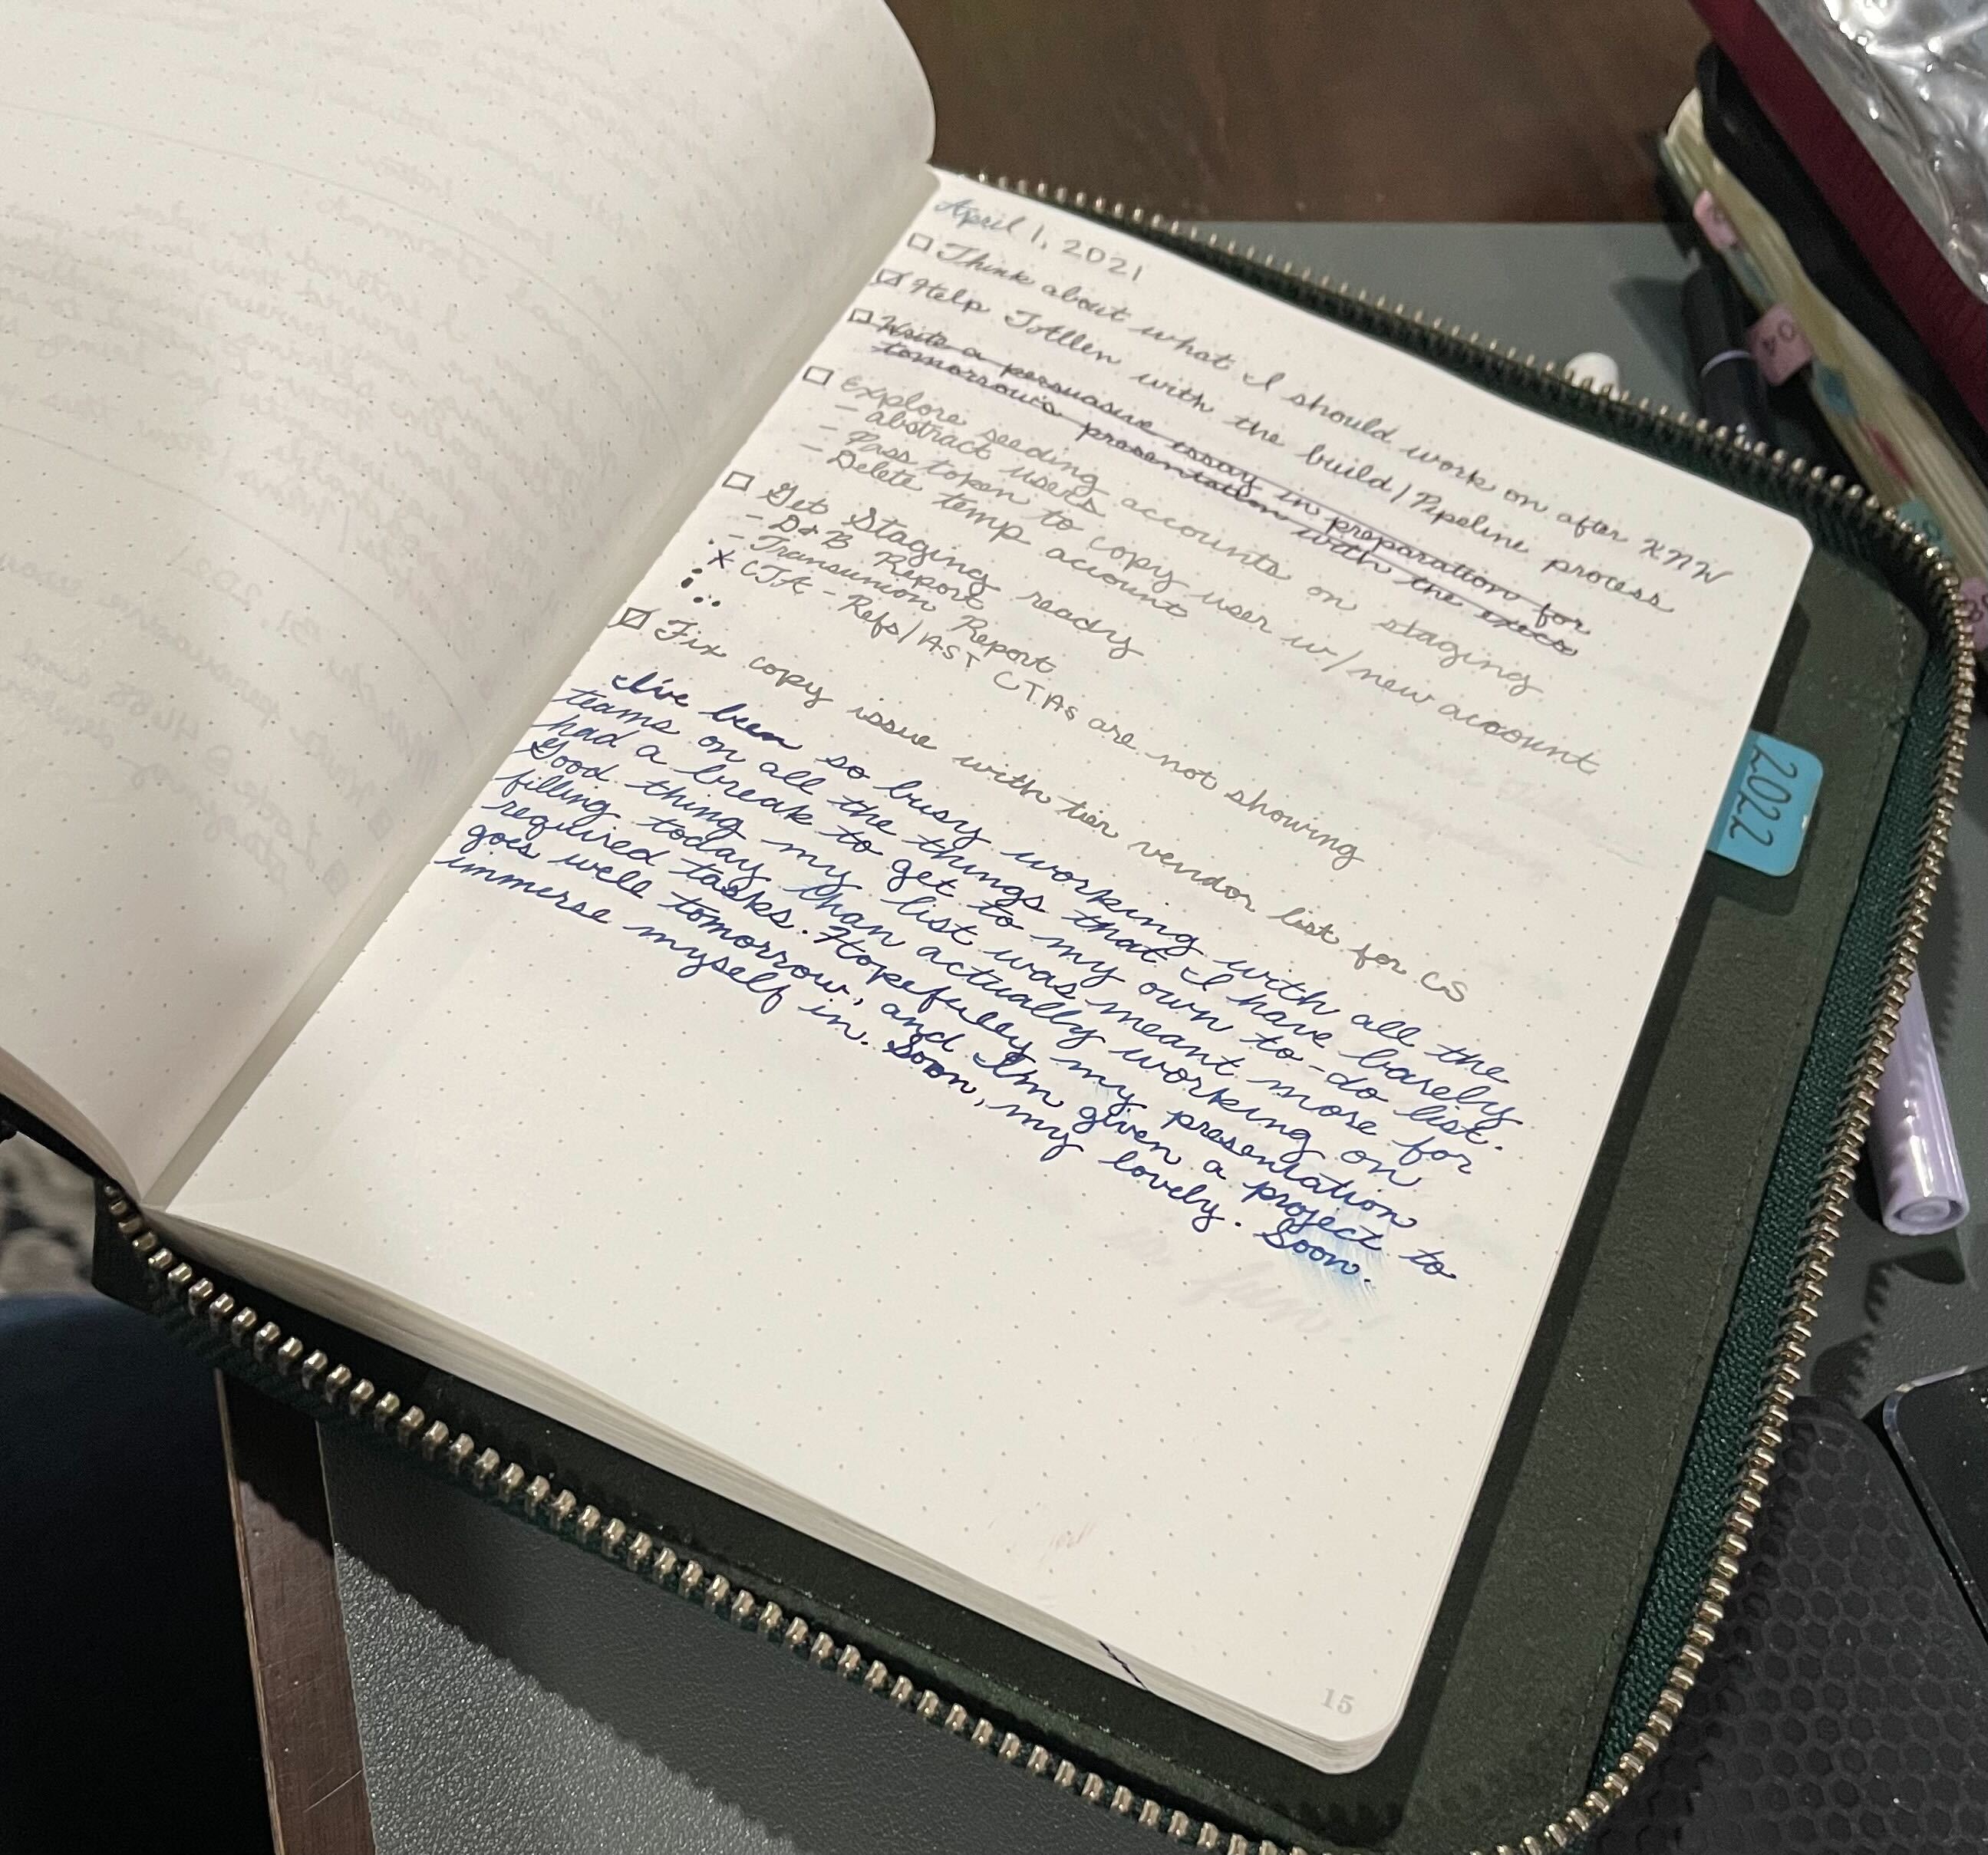 April 1, 2021
Think about what I should work on after KNW
Help JAllen with the build/Pipeline process
Write a persuasive essay in preparation for
tomorrow's presentation with the execs
Explore seeding accounts on staging
- abstract users
- Pass token to copy user w/new account
- Delete temp account
Get Staging ready
- D&B Report
- Transunion Report
x CTA - Refs/AST CTAs are not showing
Fix copy issue with tier vendor list for CS
I've been so busy working with all the
teams on all the things that I have barely
had a break to get to my own to-do list.
Good thing my list was meant more for
filling today than actually working on
required tasks. Hopefully my presentation
goes well tomorrow, and I'm given a project to
immerse myself in. Soon, my lovely. Soon.
15
2022